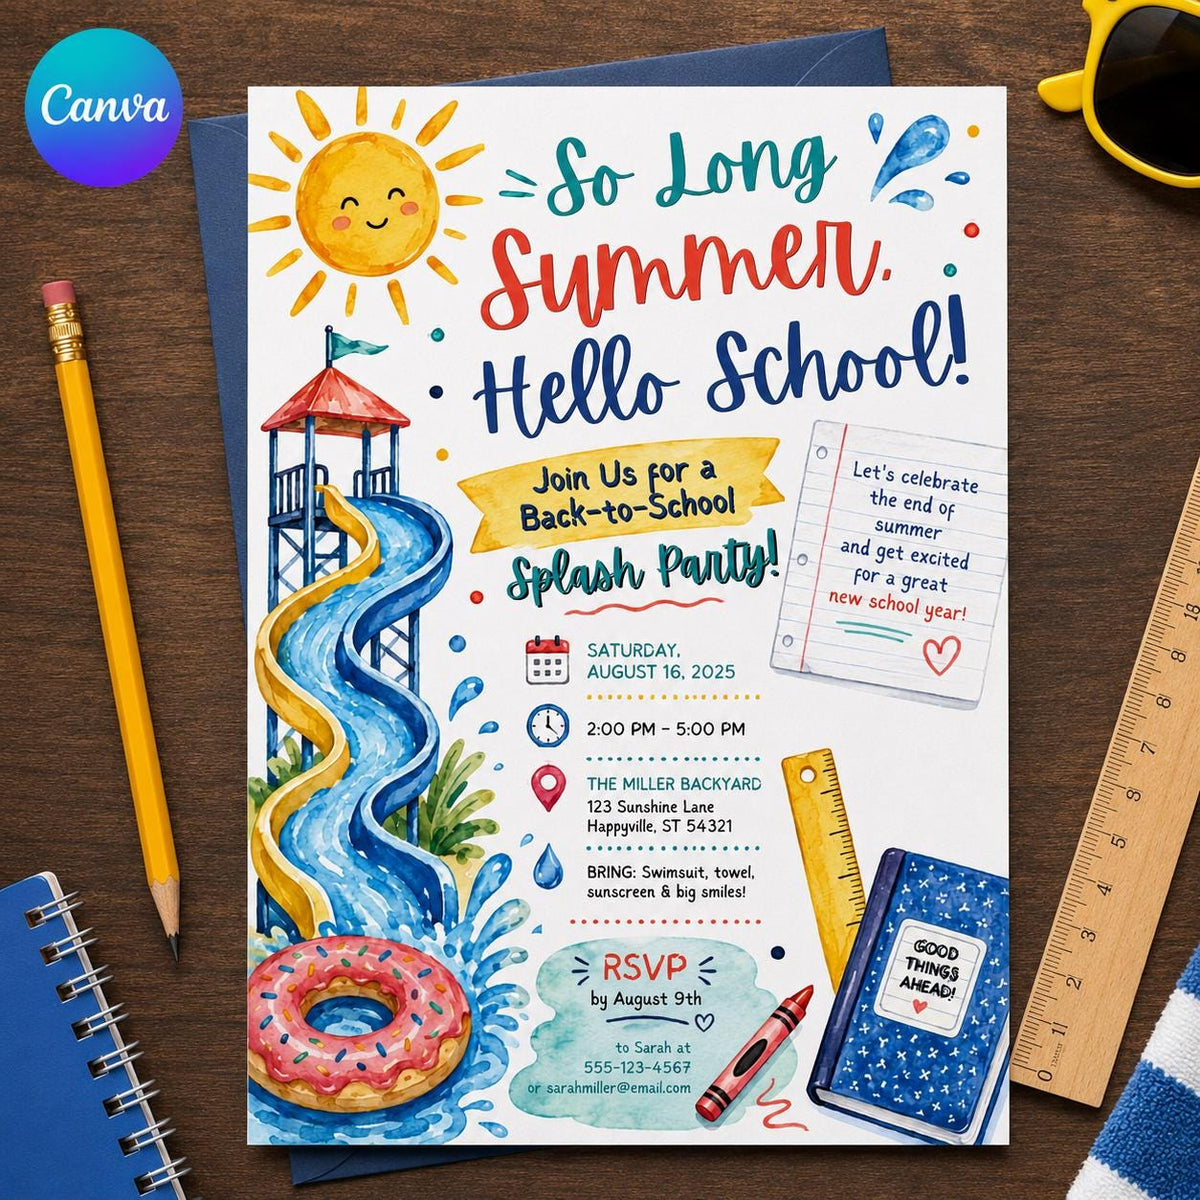 Canva
So Long
Summer.
Hello School!
Join Us for a
Back-to-School
Splash Party!
Let's celebrate
the end of
summer
and get excited
for a great
new school year!
SATURDAY,
AUGUST 16, 2025
2:00 PM – 5:00 PM
THE MILLER BACKYARD
123 Sunshine Lane
Happyville, ST 54321
BRING: Swimsuit, towel,
sunscreen & big smiles!
RSVP
by August 9th
to Sarah at
555-123-4567
or sarahmiller@email.com
GOOD
THINGS
AHEAD!